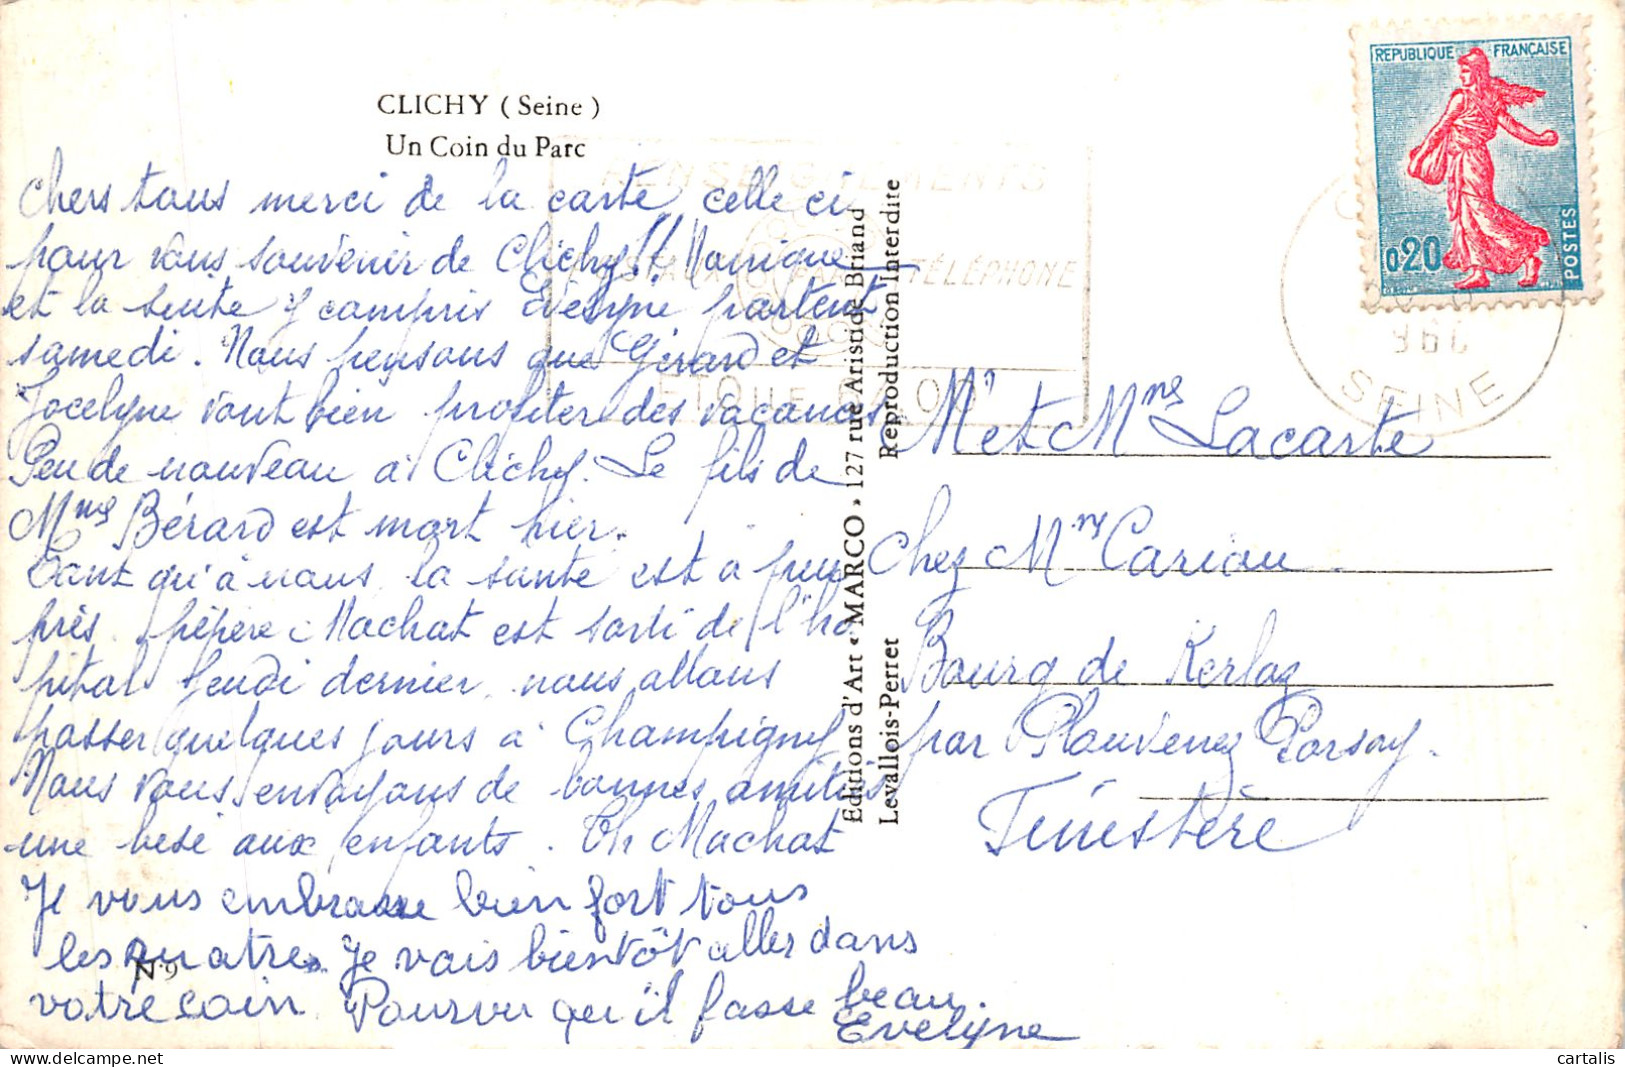 CLICHY ( Seine )
Un Coin du Parc
Chers tous merci de la carte celle ci
pour vous souvenir de Clichy. Monique
et la suite y compris Evelyne partent
samedi. Nous pensons que Gérard et
Jocelyne vont bien profiter des vacances
Peu de nouveau à Clichy. Le fils de
Mme Bérard est mort hier.
Tant qu'à nous la santé est à peu
près. pépère Machat est sorti de l'hô
pital jeudi dernier, nous allons
passer quelques jours à Champigny
Nous vous envoyons de bonnes amitiés
une bise aux enfants. Th Machat
Je vous embrasse bien fort tous
les quatre. Je vais bientôt aller dans
votre coin. Pourvu qu'il fasse beau.
Evelyne
N 9
RENSEIGNEMENTS
TÉLÉPHONE
Editions d'Art « MARCO » 127 rue Aristide Briand
Levallois-Perret Reproduction Interdite
REPUBLIQUE FRANÇAISE
0,20
POSTES
SEINE
Mr et Mme Lacarte
Chez Mme Cariou.
Bourg de Kerlaz
par Plouvenez Porsay.
Finistère
cartalis